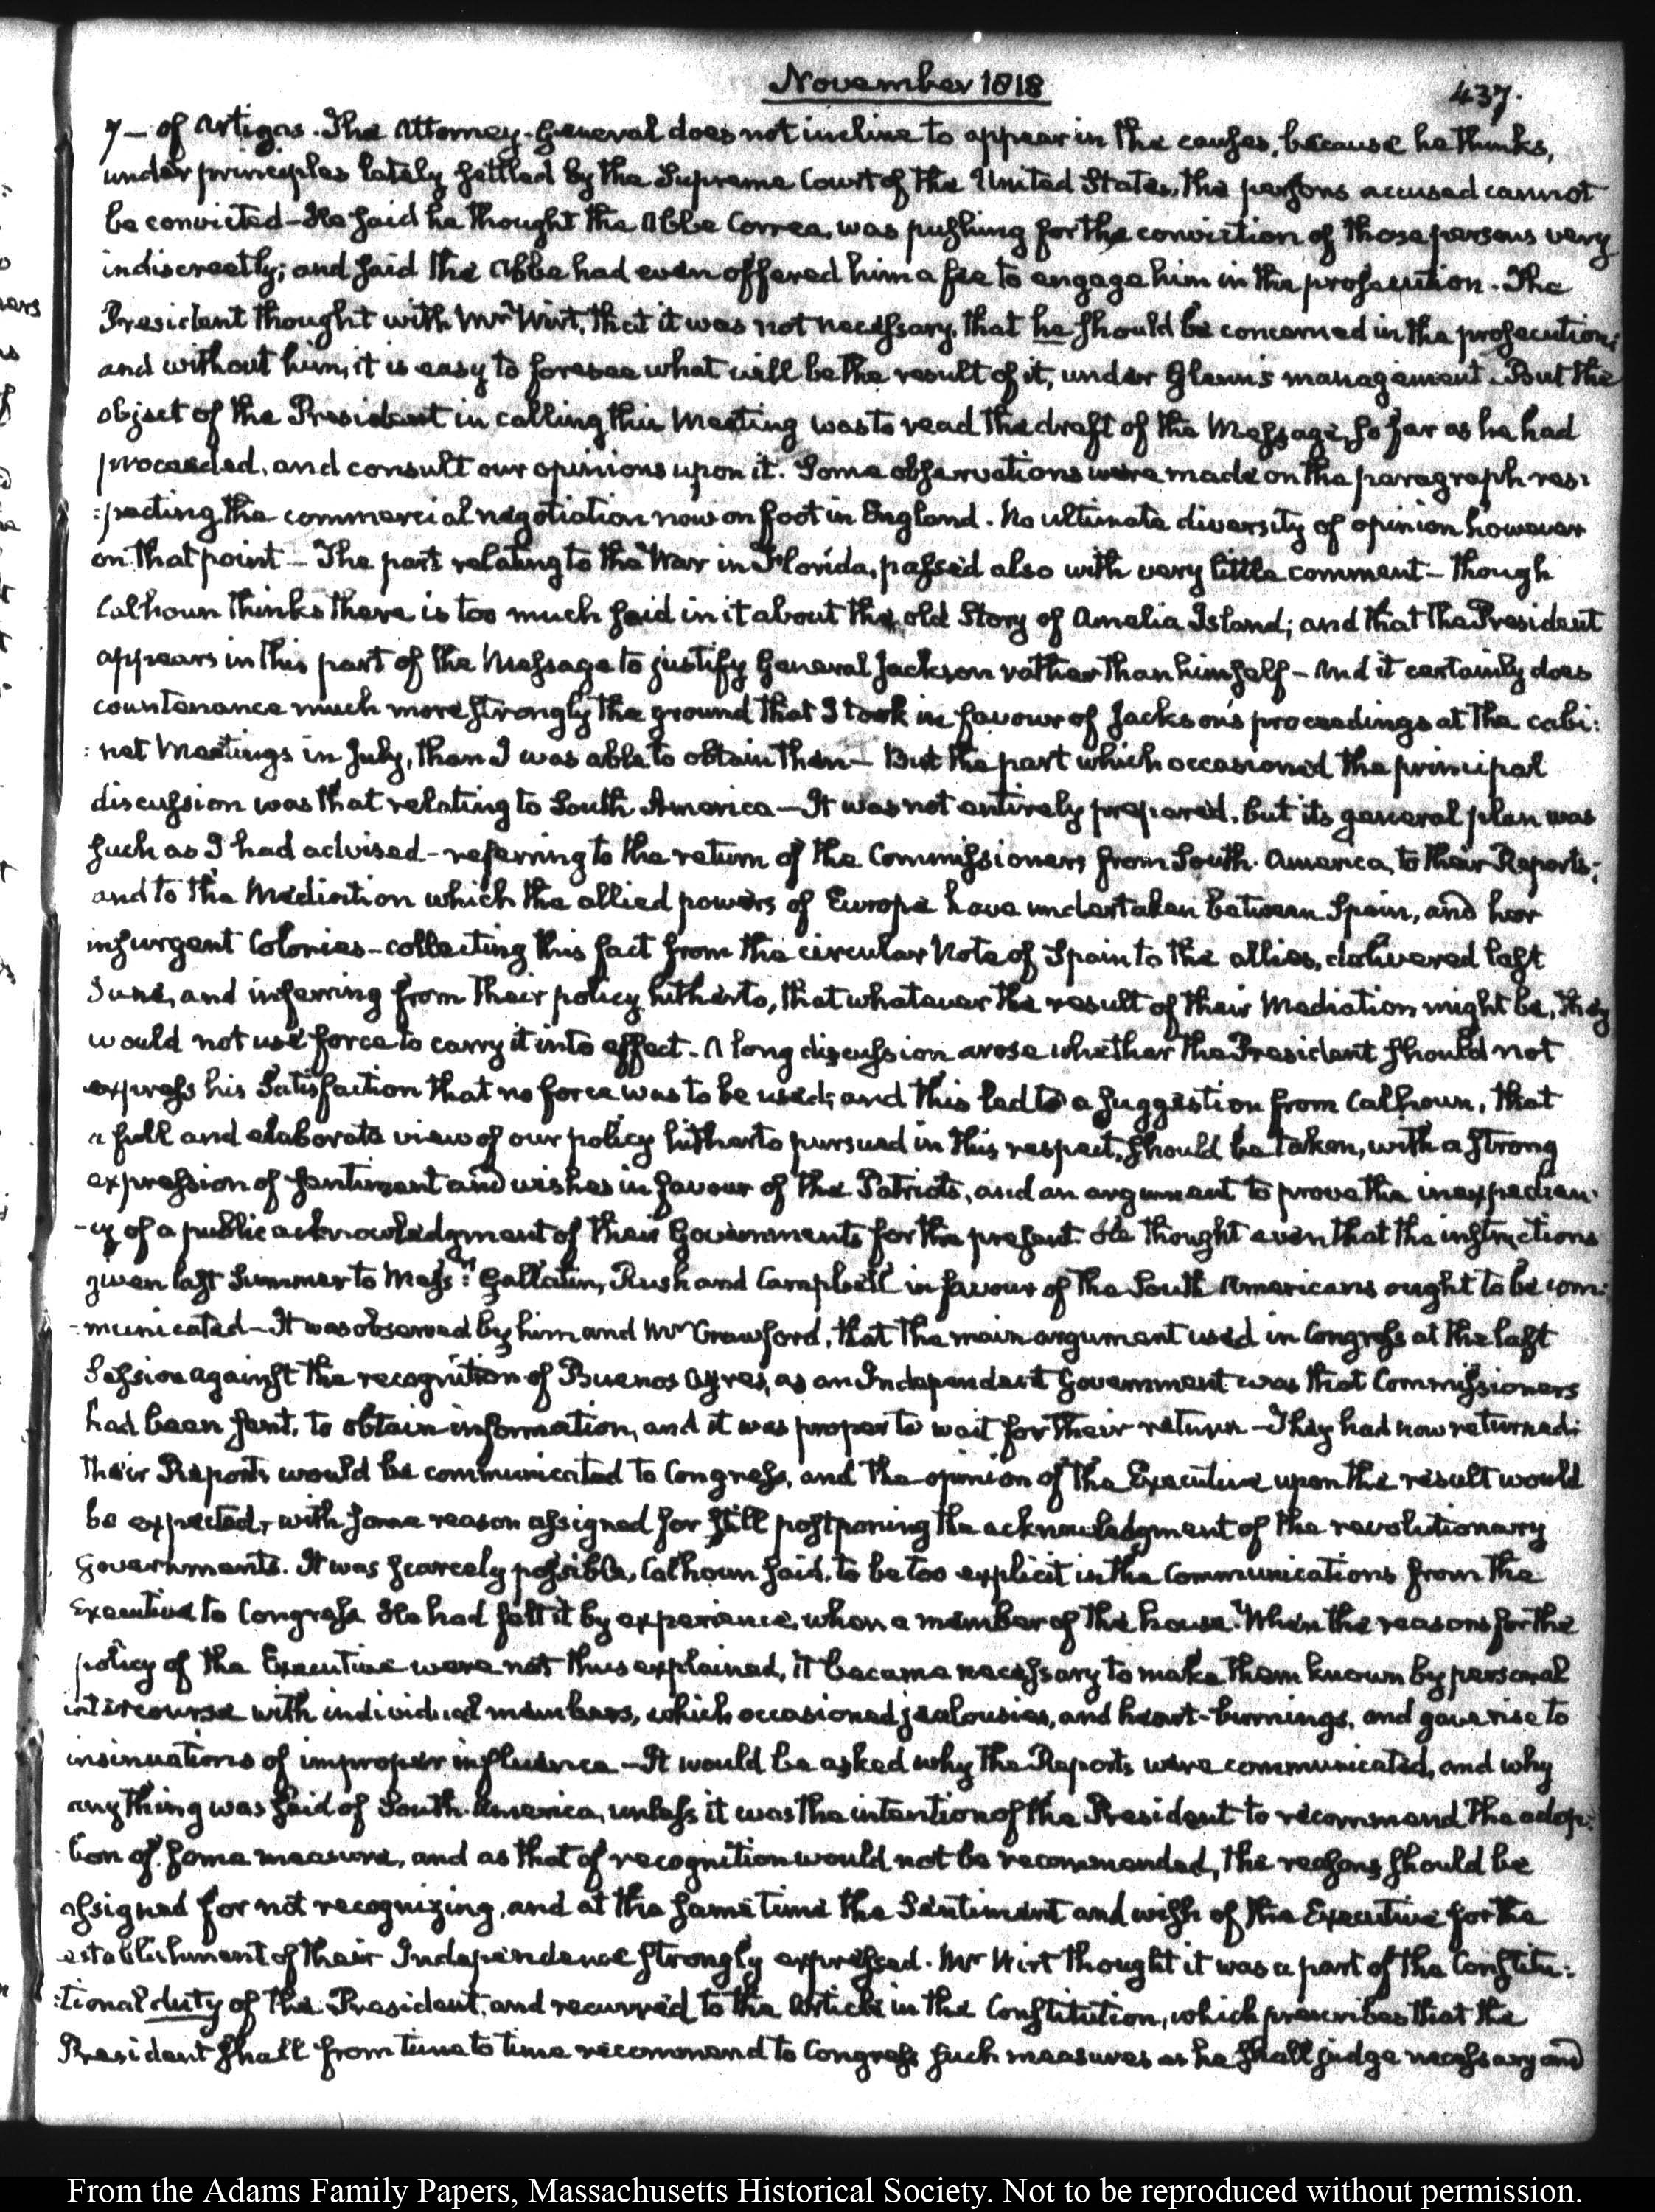 November 1818
437.
7— of Artigas. The Attorney-General does not incline to appear in the causes, because he thinks,
under principles lately settled by the Supreme Court of the United States, the persons accused cannot
be convicted—He said he thought the Abbe Correa, was pushing for the conviction of those persons very
indiscreetly; and said the Abbe had even offered him a fee to engage him in the prosecution. The
President thought with Mr Wirt, that it was not necessary, that he should be concerned in the prosecution;
and without him, it is easy to foresee what will be the result of it, under Glenn's management. But the
object of the President in calling this Meeting was to read the draft of the Message, so far as he had
proceeded, and consult our opinions upon it. Some observations were made on the paragraph res:
:pecting the commercial negotiation now on foot in England. No ultimate diversity of opinion however
on that point— The part relating to the War in Florida, passed also with very little comment— though
Calhoun thinks there is too much said in it about the old Story of Amelia Island; and that the President
appears in this part of the Message to justify General Jackson rather than himself— And it certainly does
countenance much more strongly the ground that I took in favour of Jackson's proceedings at the cabi:
:net Meetings in July, than I was able to obtain then— But the part which occasioned the principal
discussion was that relating to South America—It was not entirely prepared, but its general plan was
such as I had advised—referring to the return of the Commissioners from South-America, to their Reports;
and to the Mediation which the allied powers of Europe have undertaken between Spain, and her
insurgent Colonies—collecting this fact from the circular Note of Spain to the allies, delivered last
June, and inferring from their policy hitherto, that whatever the result of their Mediation might be, they
would not use force to carry it into effect. A long discussion arose whether the President should not
express his Satisfaction that no force was to be used; and this led to a suggestion from Calhoun, that
a full and elaborate view of our policy hitherto pursued in this respect, should be taken, with a strong
expression of sentiment and wishes in favour of the Patriots, and an argument to prove the inexpedien-
-cy of a public acknowledgment of their Governments for the present. He thought even that the instructions
given last Summer to Messrs Gallatin, Rush and Campbell in favour of the South Americans ought to be com:
-municated—It was observed by him and Mr Crawford, that the main argument used in Congress at the last
Session against the recognition of Buenos Ayres, as an Independent Government was that Commissioners
had been sent, to obtain information, and it was proper to wait for their return—They had now returned:
their Reports would be communicated to Congress, and the opinion of the Executive upon the result would
be expected, with some reason assigned for still postponing the acknowledgment of the revolutionary
Governments. It was scarcely possible, Calhoun said, to be too explicit in the Communications from the
Executive to Congress. He had felt it by experience, when a member of the house. When the reasons for the
policy of the Executive were not thus explained, it became necessary to make them known by personal
intercourse with individual members, which occasioned jealousies, and heart-burnings, and gave rise to
insinuations of improper influence—It would be asked why the Reports were communicated, and why
any thing was said of South-America, unless it was the intention of the President to recommend the adop:
tion of some measure, and as that of recognition would not be recommended, the reasons should be
assigned for not recognizing, and at the same time the Sentiment and wish of the Executive for the
establishment of their Independence strongly expressed. Mr Wirt thought it was a part of the Constitu:
:tional duty of the President, and recurred to the Article in the Constitution, which prescribes that the
President shall from time to time recommend to Congress such measures as he shall judge necessary and
From the Adams Family Papers, Massachusetts Historical Society. Not to be reproduced without permission.